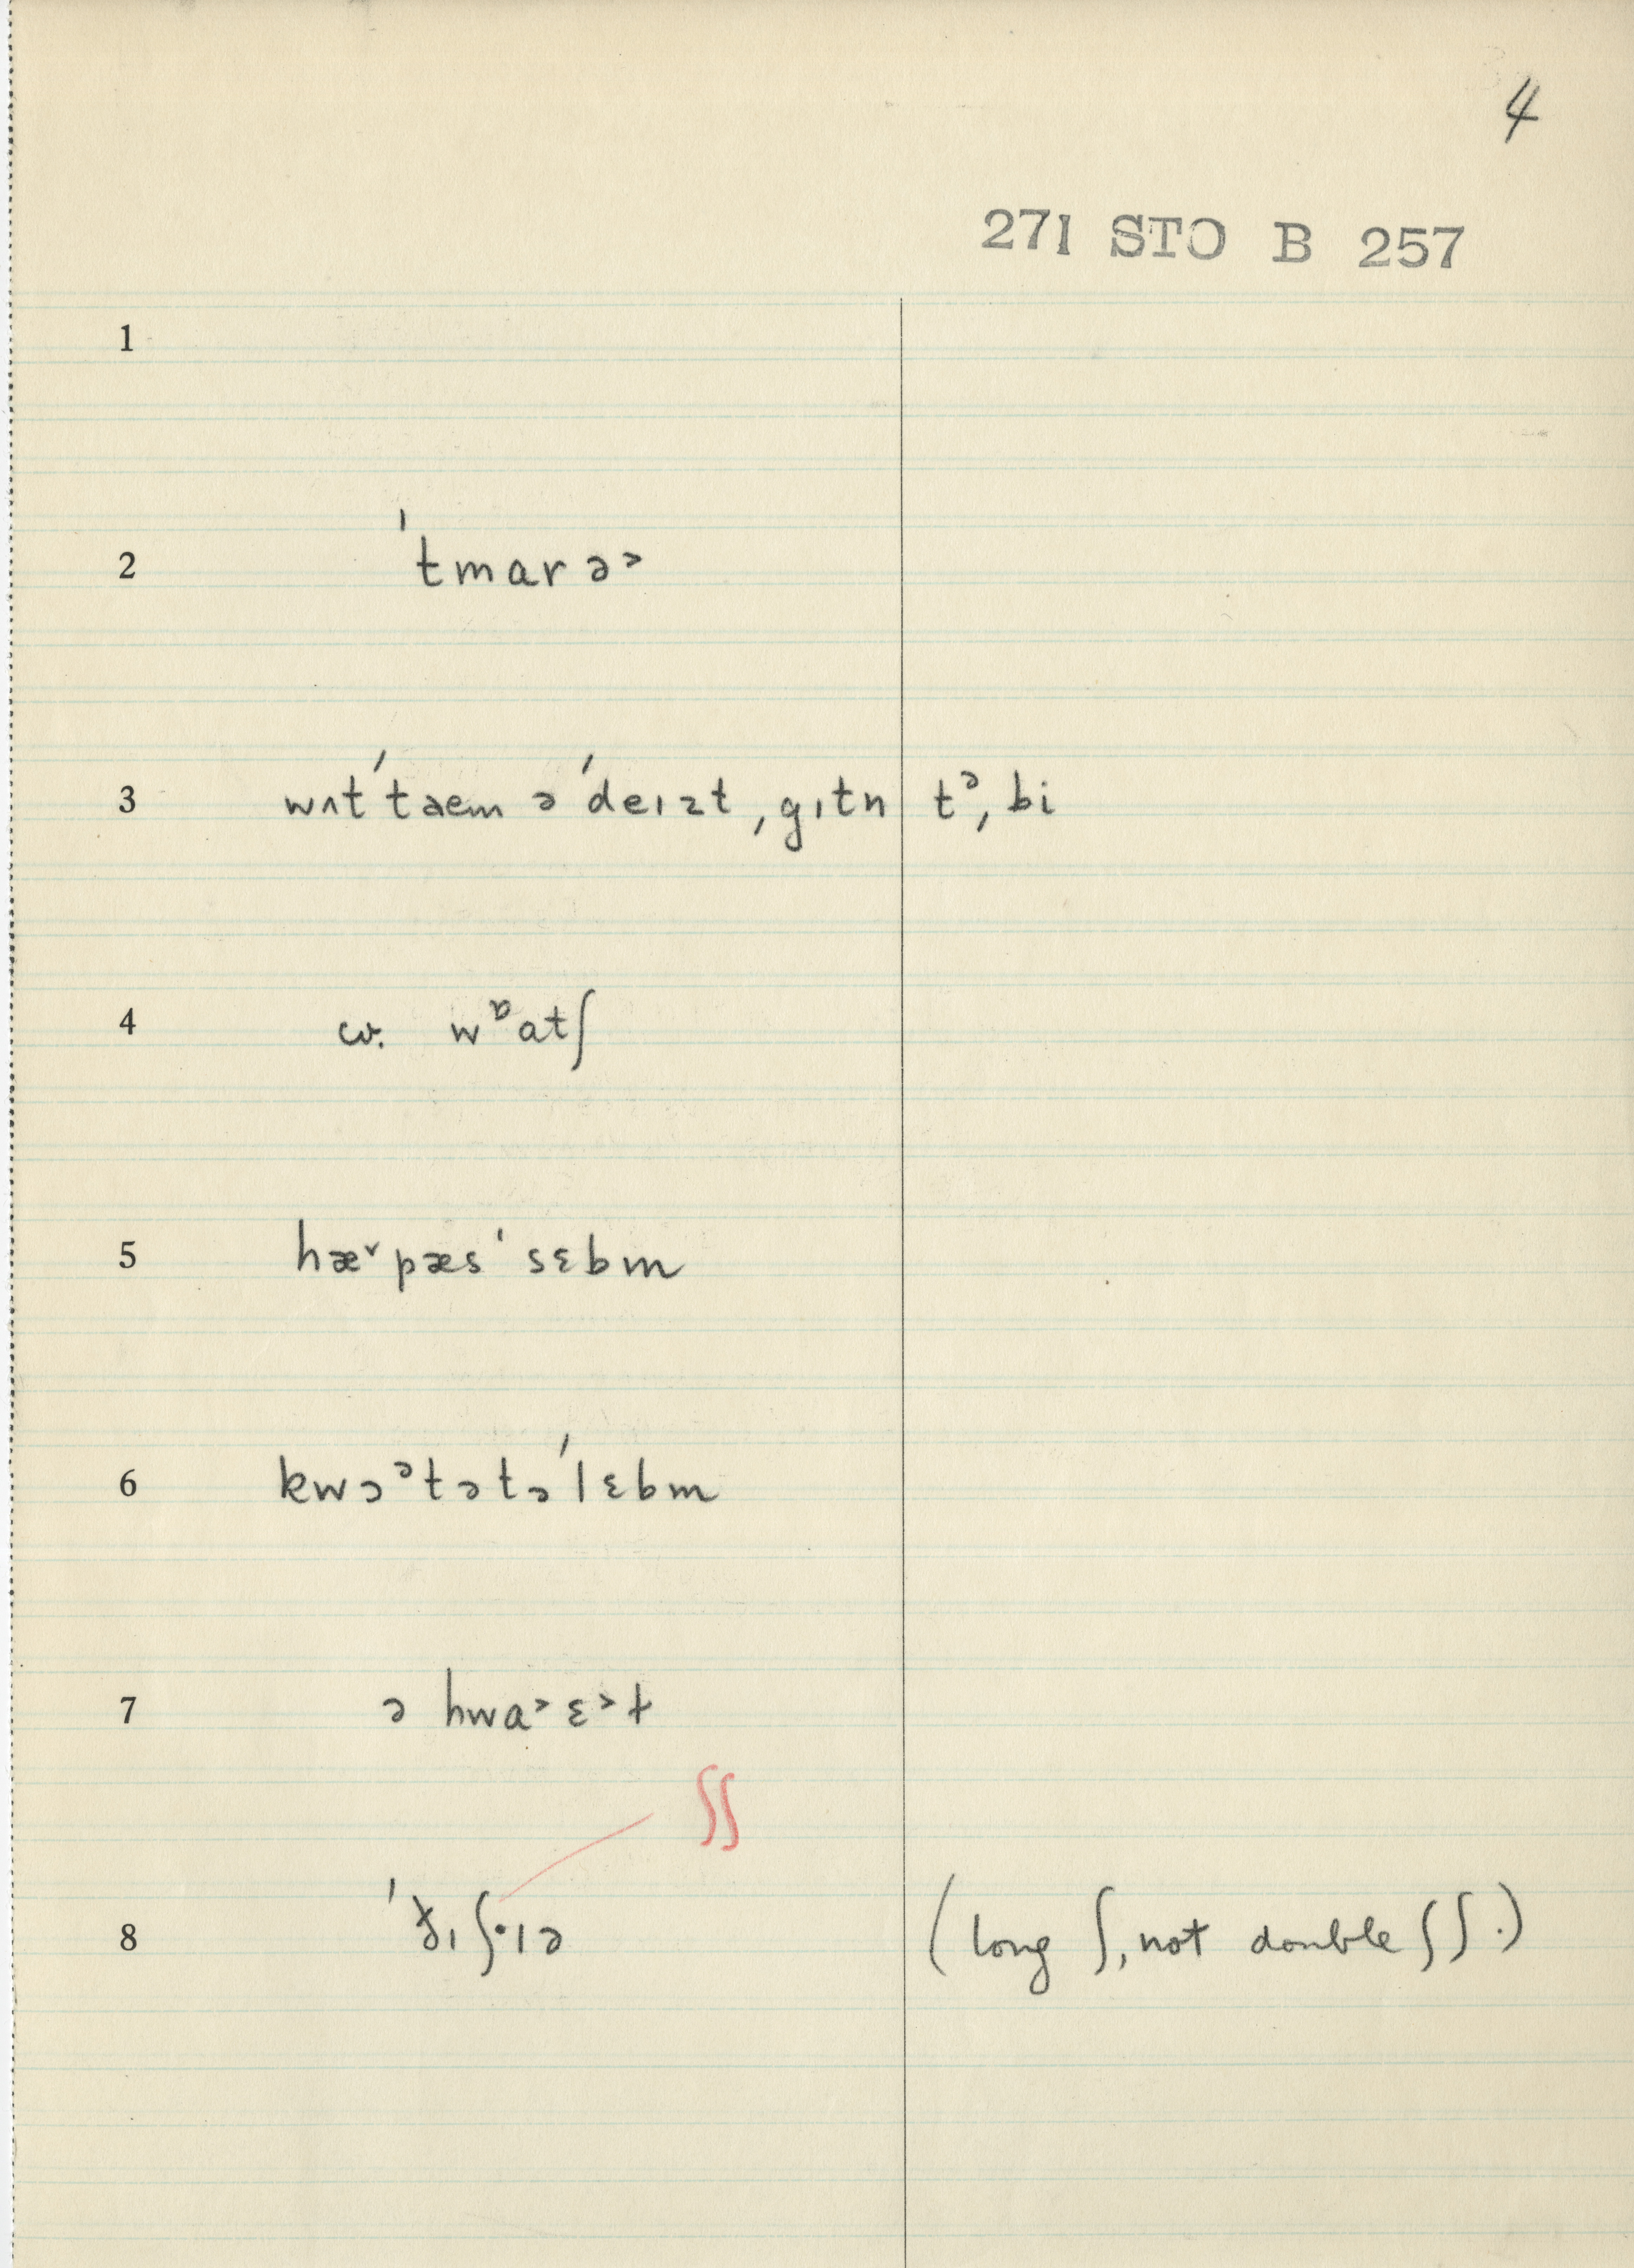 4
271 STO B 257
1
2 ˈtmarə˃
3 wʌtˈtaem əˈdeɪzt ˌgɪtn tᵊˌbi
4 cv. wᶛatʃ
5 hæ˅pæsˈsɛbm
6 kwɔᵊtətəˈlɛbm
7 ə hwa˃ɛ˃t
ʃʃ
8 (long ʃ, not double ʃʃ.)